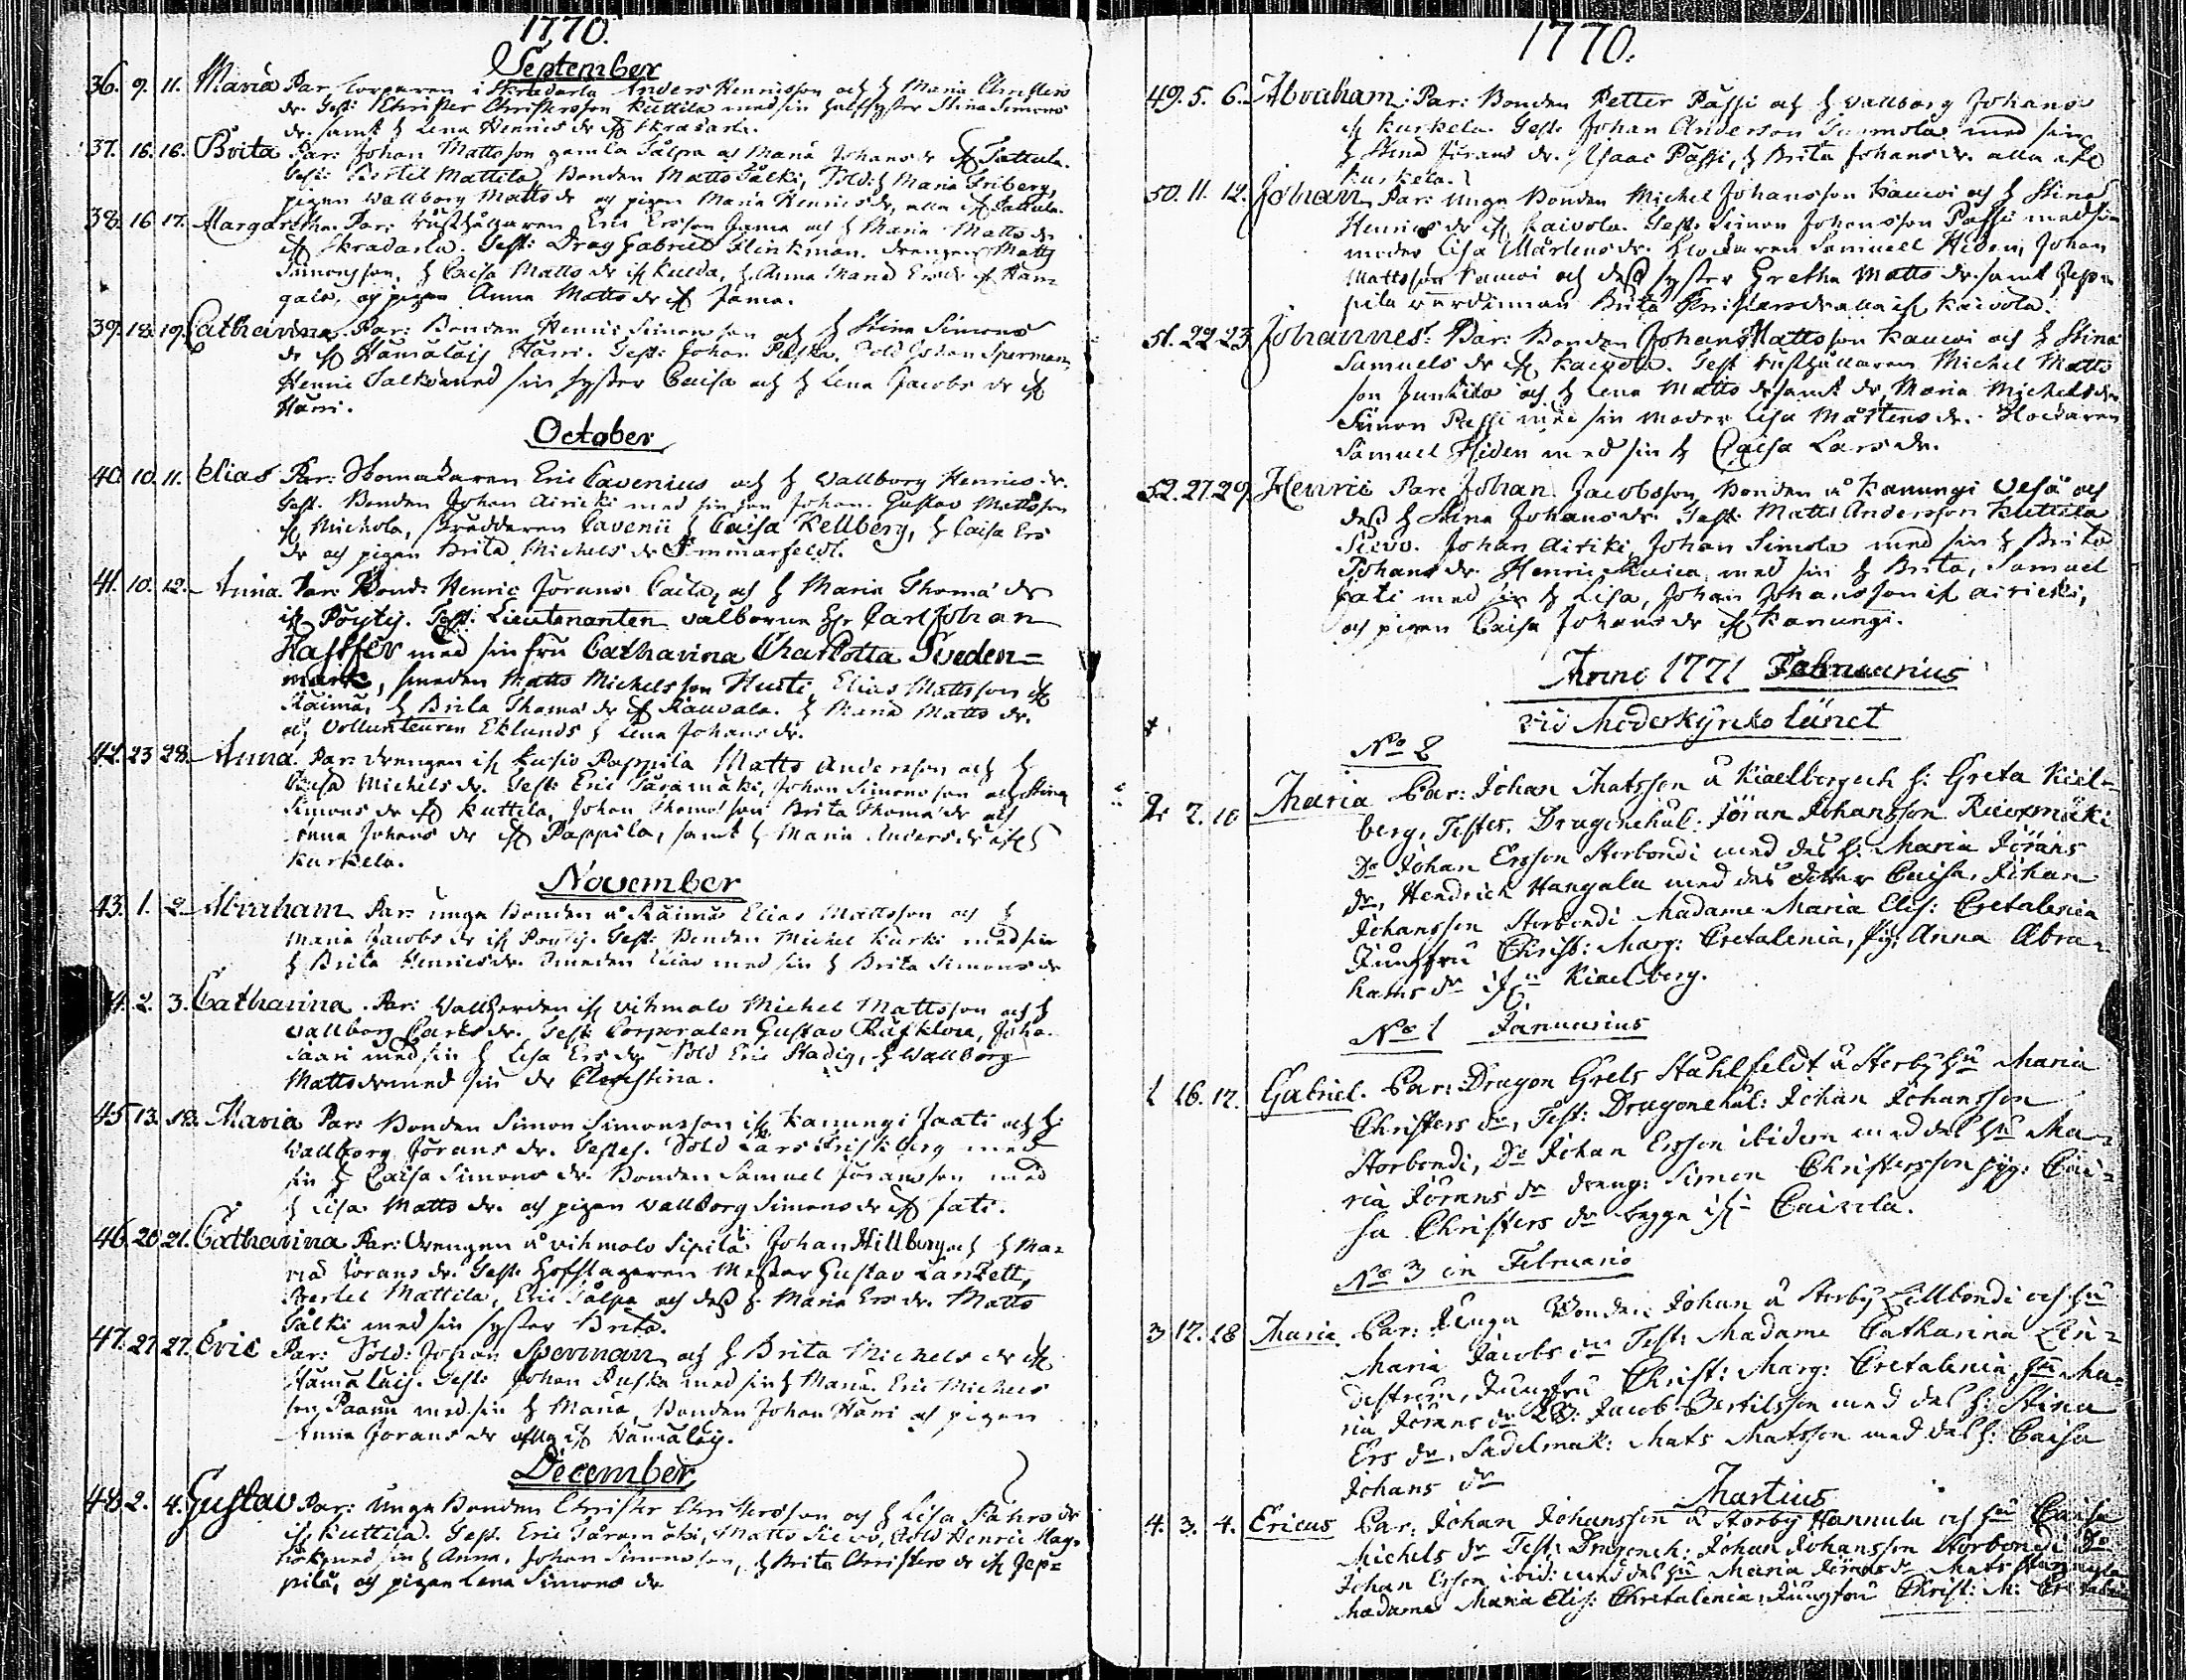 1770.
September
36. 9. 11. Maria Par. Torparen i Skradarla Anders Henricsson och h Maria Christers
dr. Test: Christer Christersson Kuttila med sin halfsyster Stina Simons
dr. samt h Lena Henrics dr if Skradarla.
37. 16. 16. Brita Par: Johan Mattsson gamla Tålpa och Maria Johans dr if Tattula.
Test: Bertil Mattila, Bonden Matts Tålki, Sold: h Maria Friberg,
pigan Wallborg Matts dr och pigan Maria Henrics dr, alla if Tattula.
38. 16. 17. Margaretha. Par: Rusthållaren Eric Ersson Jama och h Maria Matts dr
if Skradarla. Test: Drag Gabriel Flinkman. Drengen Matts
Simonsson, h Caisa Matts dr if Kulda, h Anna Maria Ers dr if Kan
gais, och pigan Anna Matts dr if Jama.
39. 18. 19. Catharina. Par: Bonden Henric Simonsson och h Stina Simons
dr if Hamalais Harri. Test: Johan Puska, Sold Johan Sperman,
Henric Salko med sin syster Caisa och h Lena Jacobs dr if
Harri.
October
40. 10. 11. Elias Par: Skomakaren Eric Cavenius och h Wallborg Henrics dr.
Test. Bonden Johan Airicki med sin son Johan. Gustav Mattsson
if Michola, skräddaren Cavenii h Caisa Kellberg, h Caisa Ers
dr och pigan Brita Michels dr Emmarfeldt.
41. 10. 12. Anna. Par: Bond: Henric Jörans Caila, och h Maria Thoma dr
if Pöytis. Test: Lieutenanten valborne Hr Carl Johan
Hastfer med sin fru Catharina Charlotta Sveden=
mark, smeden Matts Michelsson Husti, Elias Mattsson if
Raima, h Brita Thoma dr if Rauvala. h Maria Matts dr.
och Vollunteuren Eklunds h Lena Johans dr.
42. 23 28. Anna. Par: Drengen if Kusio Pappila Matts Andersson och h
Caisa Michels dr. Test: Eric Taramäki, Johan Simonsson och Stina
Simons dr if Kuttila, Johan Thomasson Brita Thoma dr och
Anna Johans dr if Pappila, samt h Maria Anders dr if
Kurkela.
November
43. 1. 2. Abraham Par: unga Bonden å Raima Elias Mattsson och h
Maria Jacobs dr if Pöytis. Test: Bonden Michel Kurki med sin
h Brita Henrics dr. Smeden Elias med sin h Brita Simons dr
44. 2. 3. Catharina. Par: Vallherden if Vihmalo Michel Mattsson och h
Wallborg Carls dr. Test: Corporalen Gustav Rusklou, Joha.
Saari med sin h Lisa Ers dr Sold Eric Stadig, h Wallborg
Matts dr med sin dr Christina.
45 13. 18. Maria Par: Bonden Simon Simonsson if Kanungi Jaati och h
Wallborg Jörans dr. Testes. Sold Lars Friskberg med
sin h Caisa Simons dr. Bonden Samuel Jöransson med
h Lisa Matts dr. och pigan Wallborg Simons dr if Jati.
46. 20 21. Catharina Par: Drengen å Vihmalo Sipilä Johan Hillberg och h Ma=
ria Jörans dr. Test: Hofslagaren Mester Gustav Lanzett,
Bertel Mattila, Eric Tålpa och dess h Maria Ers dr. Matts
Tålki med sin syster Brita.
47. 27 27. Eric Par: Sold: Johan Sperman och h Brita Michels dr if
Hamalais. Test: Johan Puska med sin h Maria. Eric Michels
son Paavu med sin h Maria, Bonden Johan Harri och pigan
Anna Jörans dr alla if Hamalais.
December
48. 2. 4. Gustav Par: Unga Bonden Christer Christersson och h Lisa Påhrs dr
if Kuttila. Test. Eric Taramäki, Matts Sievo, Sold Henric Hag=
hök med sin h Anna, Johan Simonsson, h Brita Christers dr if Jep=
pilä, och pigan Lena Simons dr
1770.
49. 5. 6. Abraham: Par: Bonden Petter Passi och h Wallborg Johans
if Kurkela. Test: Johan Andersson Simola med sin
h Stina Jörans dr. Isaac Passi, h Brita Johans dr. alla if
Kurkela.
50. 11. 12. Johan. Par: Unga Bonden Michel Johansson Kauvoi och h Stina
Henrics dr if Kaivola. Test: Simon Johansson Passi med sin
moder Lisa Mårtens dr. Klockaren Samuell Hiden, Johan
Mattsson Kauvoi och dess syster Gretha Matts dr samt Jep=
pila värdinnan Brita Christers dr alla if Kaivola.
51. 22 23 Johannes. Par: Bonden Johan Mattsson Kauvoi och h Stina
Samuels dr if Kaivola. Test Rusthållaren Michel Matts
son Junkila och h Lena Matts dr samt dr Maria Michels dr
Simon Passi med sin moder Lisa Mårtens dr. Klockaren
Samuel Hiden med sin h Caisa Lars dr.
52. 27. 29. Henric Par: Johan Jacobsson, Bonden å Kanungi Vesa och
dess h Stina Johans dr. Test: Matts Andersson Kuttila
Sievo. Johan Airiki, Johan Simola med sin h Brita
Johans dr. Henric Kuica med sin h Brita, Samuel
Jati med sin h Lisa, Johan Johansson if Airicki,
och pigan Caisa Johans dr if Kanungi.
Anno 1771 Februarius
vid Moderkyrko länet
No 2
2. 7. 10 Maria Par: Johan Matsson å Kiaelberg och h: Greta Kiel-
berg, Testes. Dragonehål: Jöran Johansson Rucormäki
Do Johan Ersson Storbondi med des h: Maria Jörans
dr, Hendrich Hangala med des doter Caisa. Johan
Johansson Storbondi Madame Maria Elis: Cretalenia
Jungfru Christ: Marg: Cretalenia, pig: Anna Abra-
hams dr ifrn Kiaelberg.
No 1 Januarius
1 16. 17. Gabriel. Par: Dragon Grels Stahlfeldt å Storby hu Maria
Christers dr, Test: Dragonehål: Johan Johansson
Storbondi, Do Johan Ersson ibidem med des hu Ma=
ria Jörans dr dreng: Simon Christersson pig: Cai=
sa Christers dr begge ifrn Caivola.
No 3 in Februario
3 17. 18 Maria Par: Unga Bonden Johan å Storby Lillbondi och hu
Maria Jacobs dr Test: Madame Catharina Lin=
deström, Jungfru Christ: Marg: Cretalenia, hu Ma=
ria Jörans dr Jacob Bertilsson med des h: Stina
Ers dr, Sadelmak: Mats Matsson med des h: Caisa
Johans dr
Martius
4. 3. 4. Ericus Par: Johan Johansson å Storby Hannula och hu Caisa
Michels dr Test: Dragoneh: Johan Johansson Storbondi Do
Johan Ersson ibid: med des hu Maria Jörans dr Mats
Madame Maria Elis: Chretalenia, Jungfru Christ: M: Cretalenia